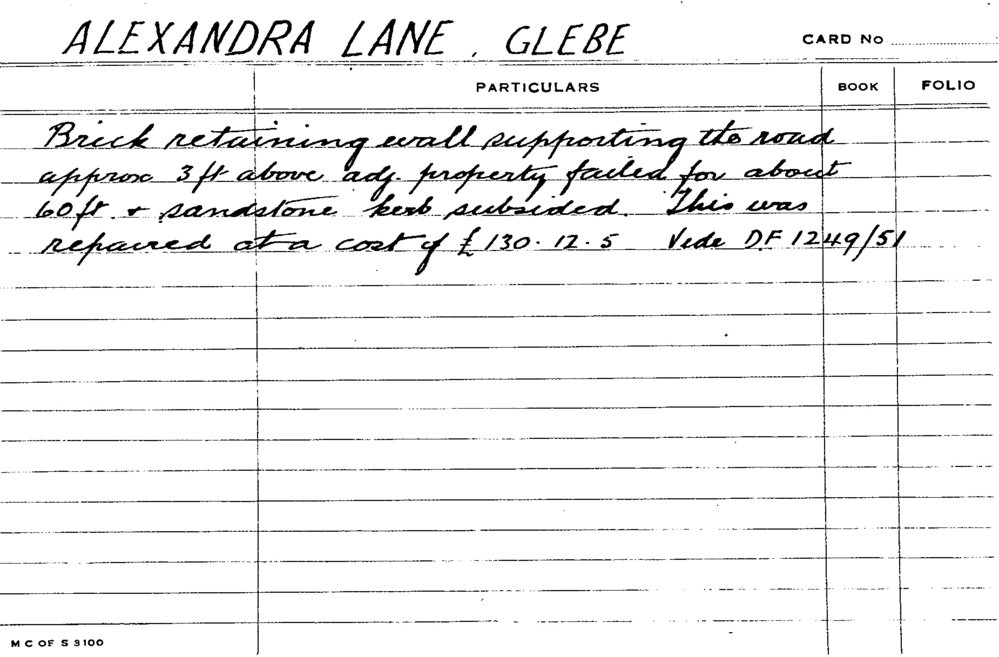 ALEXANDRA LANE, GLEBE
CARD No
PARTICULARS BOOK FOLIO
Brick retaining wall supporting the road
approx 3 ft above adj. property failed for about
60 ft + sandstone kerb subsided. This was
repaired at a cost of £130.12.5 Vide D.F 1249/51
M C OF S 3100